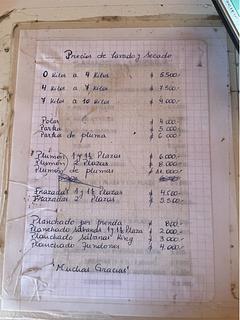 Precios de lavado y secado
0 Kilos a 4 Kilos $ 5.500.-
4 Kilos a 7 Kilos $ 7.500.-
7 Kilos a 10 Kilos $ 9.000.-
Polar $ 4.000.-
Parka $ 5.000.-
Parka de pluma $ 6.000
Plumón 1 y 1½ Plazas $ 6.000.-
Plumón 2 Plazas $ 8.000.-
Plumón de plumas
Frazadas 1 y 1½ Plazas $ 4.500.-
Frazadas 2 Plazas $ 5.500.-
Planchado por prenda $ 800.-
Planchado sábanas 1 y 1½ Plaza $ 2.000.-
Planchado sábanas King $ 3.000.-
Planchado fundones $ 4.000.-
"Muchas Gracias"